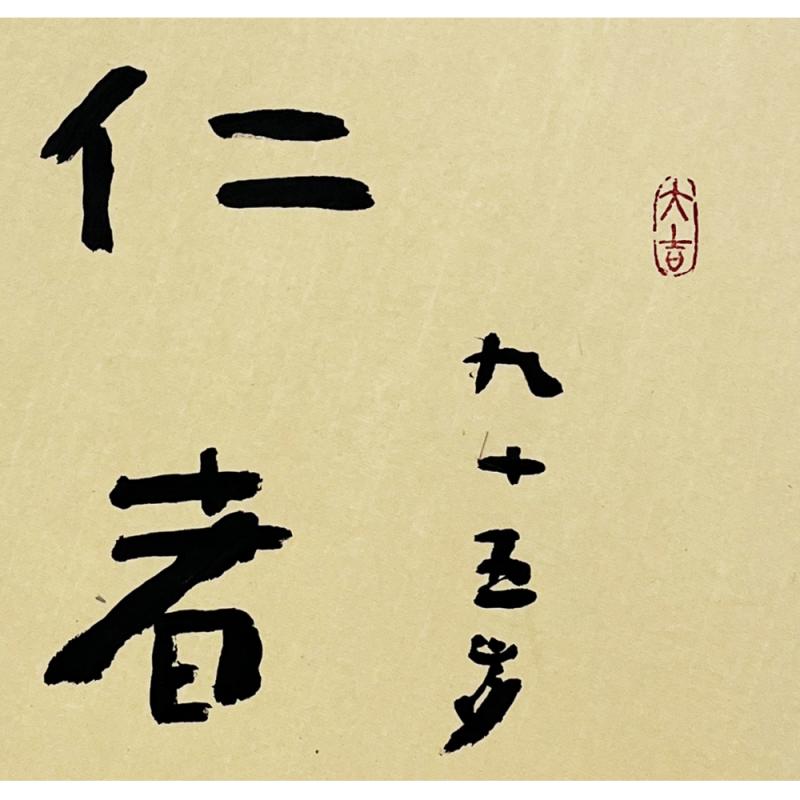 大吉
九十五岁
仁者